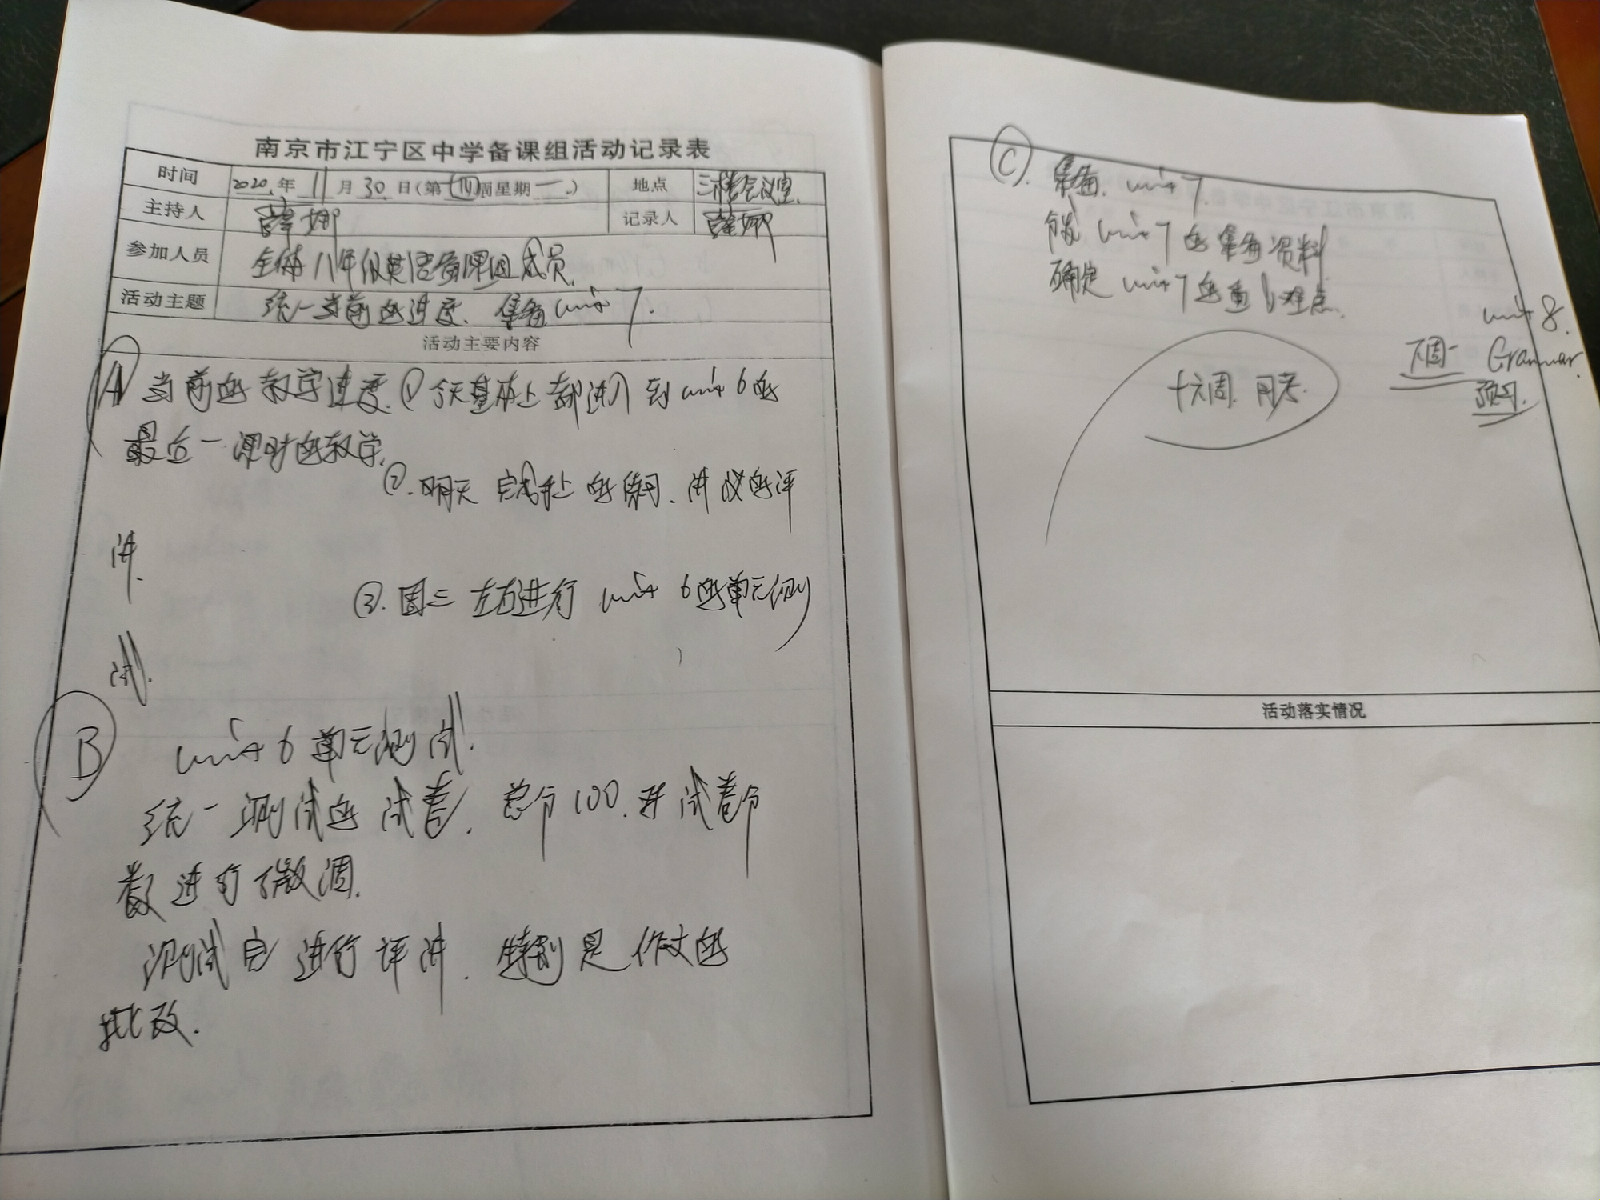 南京市江宁区中学备课组活动记录表
时间 2020年 11月30日(第十四周星期一) 地点 三楼会议室
主持人 薛娜 记录人 薛娜
参加人员 全体八年级英语备课组成员
活动主题 统一当前的进度、集备unit 7.
活动主要内容
A 当前的教学进度.①今天基本上都进入到unit 6的
最后一课时的教学.
②.明天完成 的练习、讲义的评
讲.
③.周三左右进行unit 6的单元测
试.
B unit 6单元测试.
统一测试的试卷.总分100.并试卷分
数进行了微调.
测试完进行评讲.特别是作文的
批改.
C. 集备.unit 7.
unit 7的集备资料
确定unit 7的重、难点.
unit 8.
下周一 Grammar.
十六周.月考. 预习.
活动落实情况